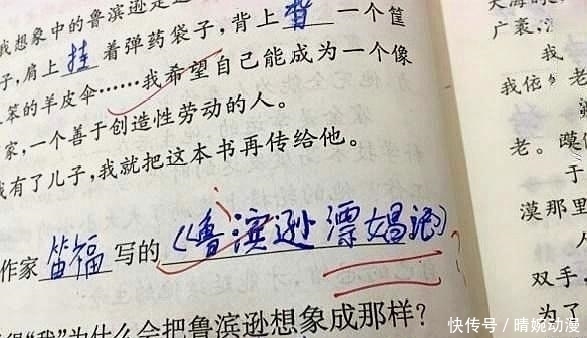 我想象中的鲁滨逊是
子,肩上挂着弹药袋子,背上背一个筐
笨的羊皮伞……我希望自己能成为一个像
家,一个善于创造性劳动的人。
我有了儿子,我就把这本书再传给他。
作家笛福写的《鲁滨逊漂娼记》
得“我”为什么会把鲁滨逊想象成那样?
广袤,
我
我依
老
老。
于
漠那里
双手,
为了
快传号 / 晴婉动漫